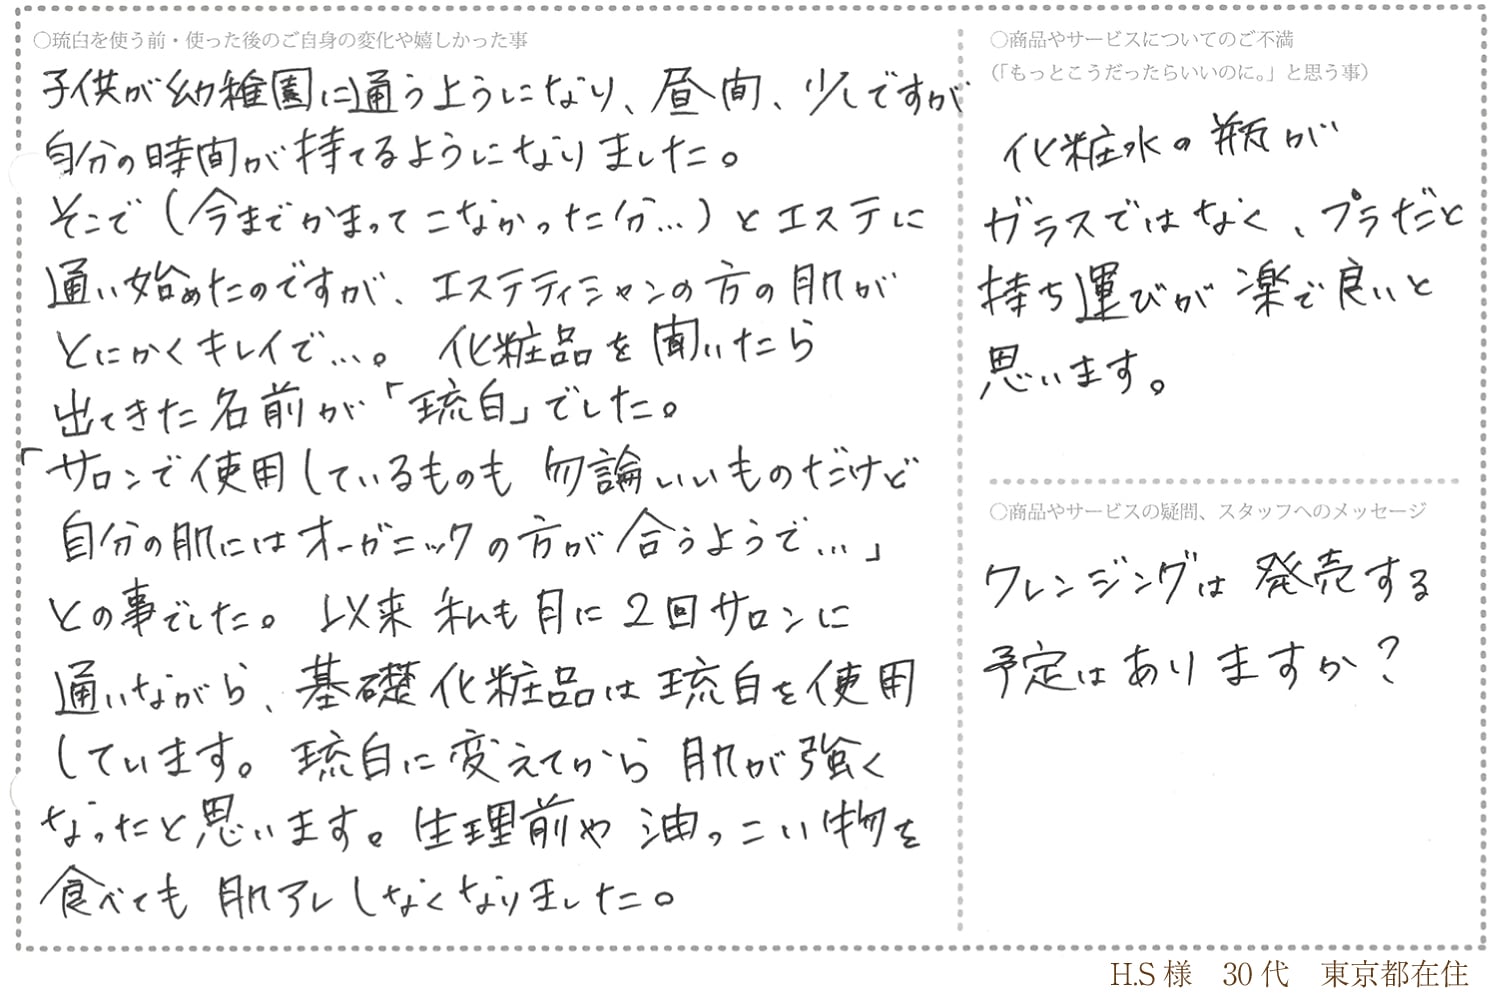 ○琉白を使う前・使った後のご自身の変化や嬉しかった事
子供が幼稚園に通うようになり、昼間、少しですが
自分の時間が持てるようになりました。
そこで(今までかまってこなかった分…)とエステに
通い始めたのですが、エステティシャンの方の肌が
とにかくキレイで…。化粧品を聞いたら
出てきた名前が「琉白」でした。
「サロンで使用しているものも勿論いいものだけど
自分の肌にはオーガニックの方が合うようで…」
との事でした。以来私も月に2回サロンに
通いながら、基礎化粧品は琉白を使用
しています。琉白に変えてから肌が強く
なったと思います。生理前や油っこい物を
食べても肌アレしなくなりました。
○商品やサービスについてのご不満
(「もっとこうだったらいいのに。」と思う事)
化粧水の瓶が
ガラスではなく、プラだと
持ち運びが楽で良いと
思います。
○商品やサービスの疑問、スタッフへのメッセージ
クレンジングは発売する
予定はありますか?
H.S様 30代 東京都在住